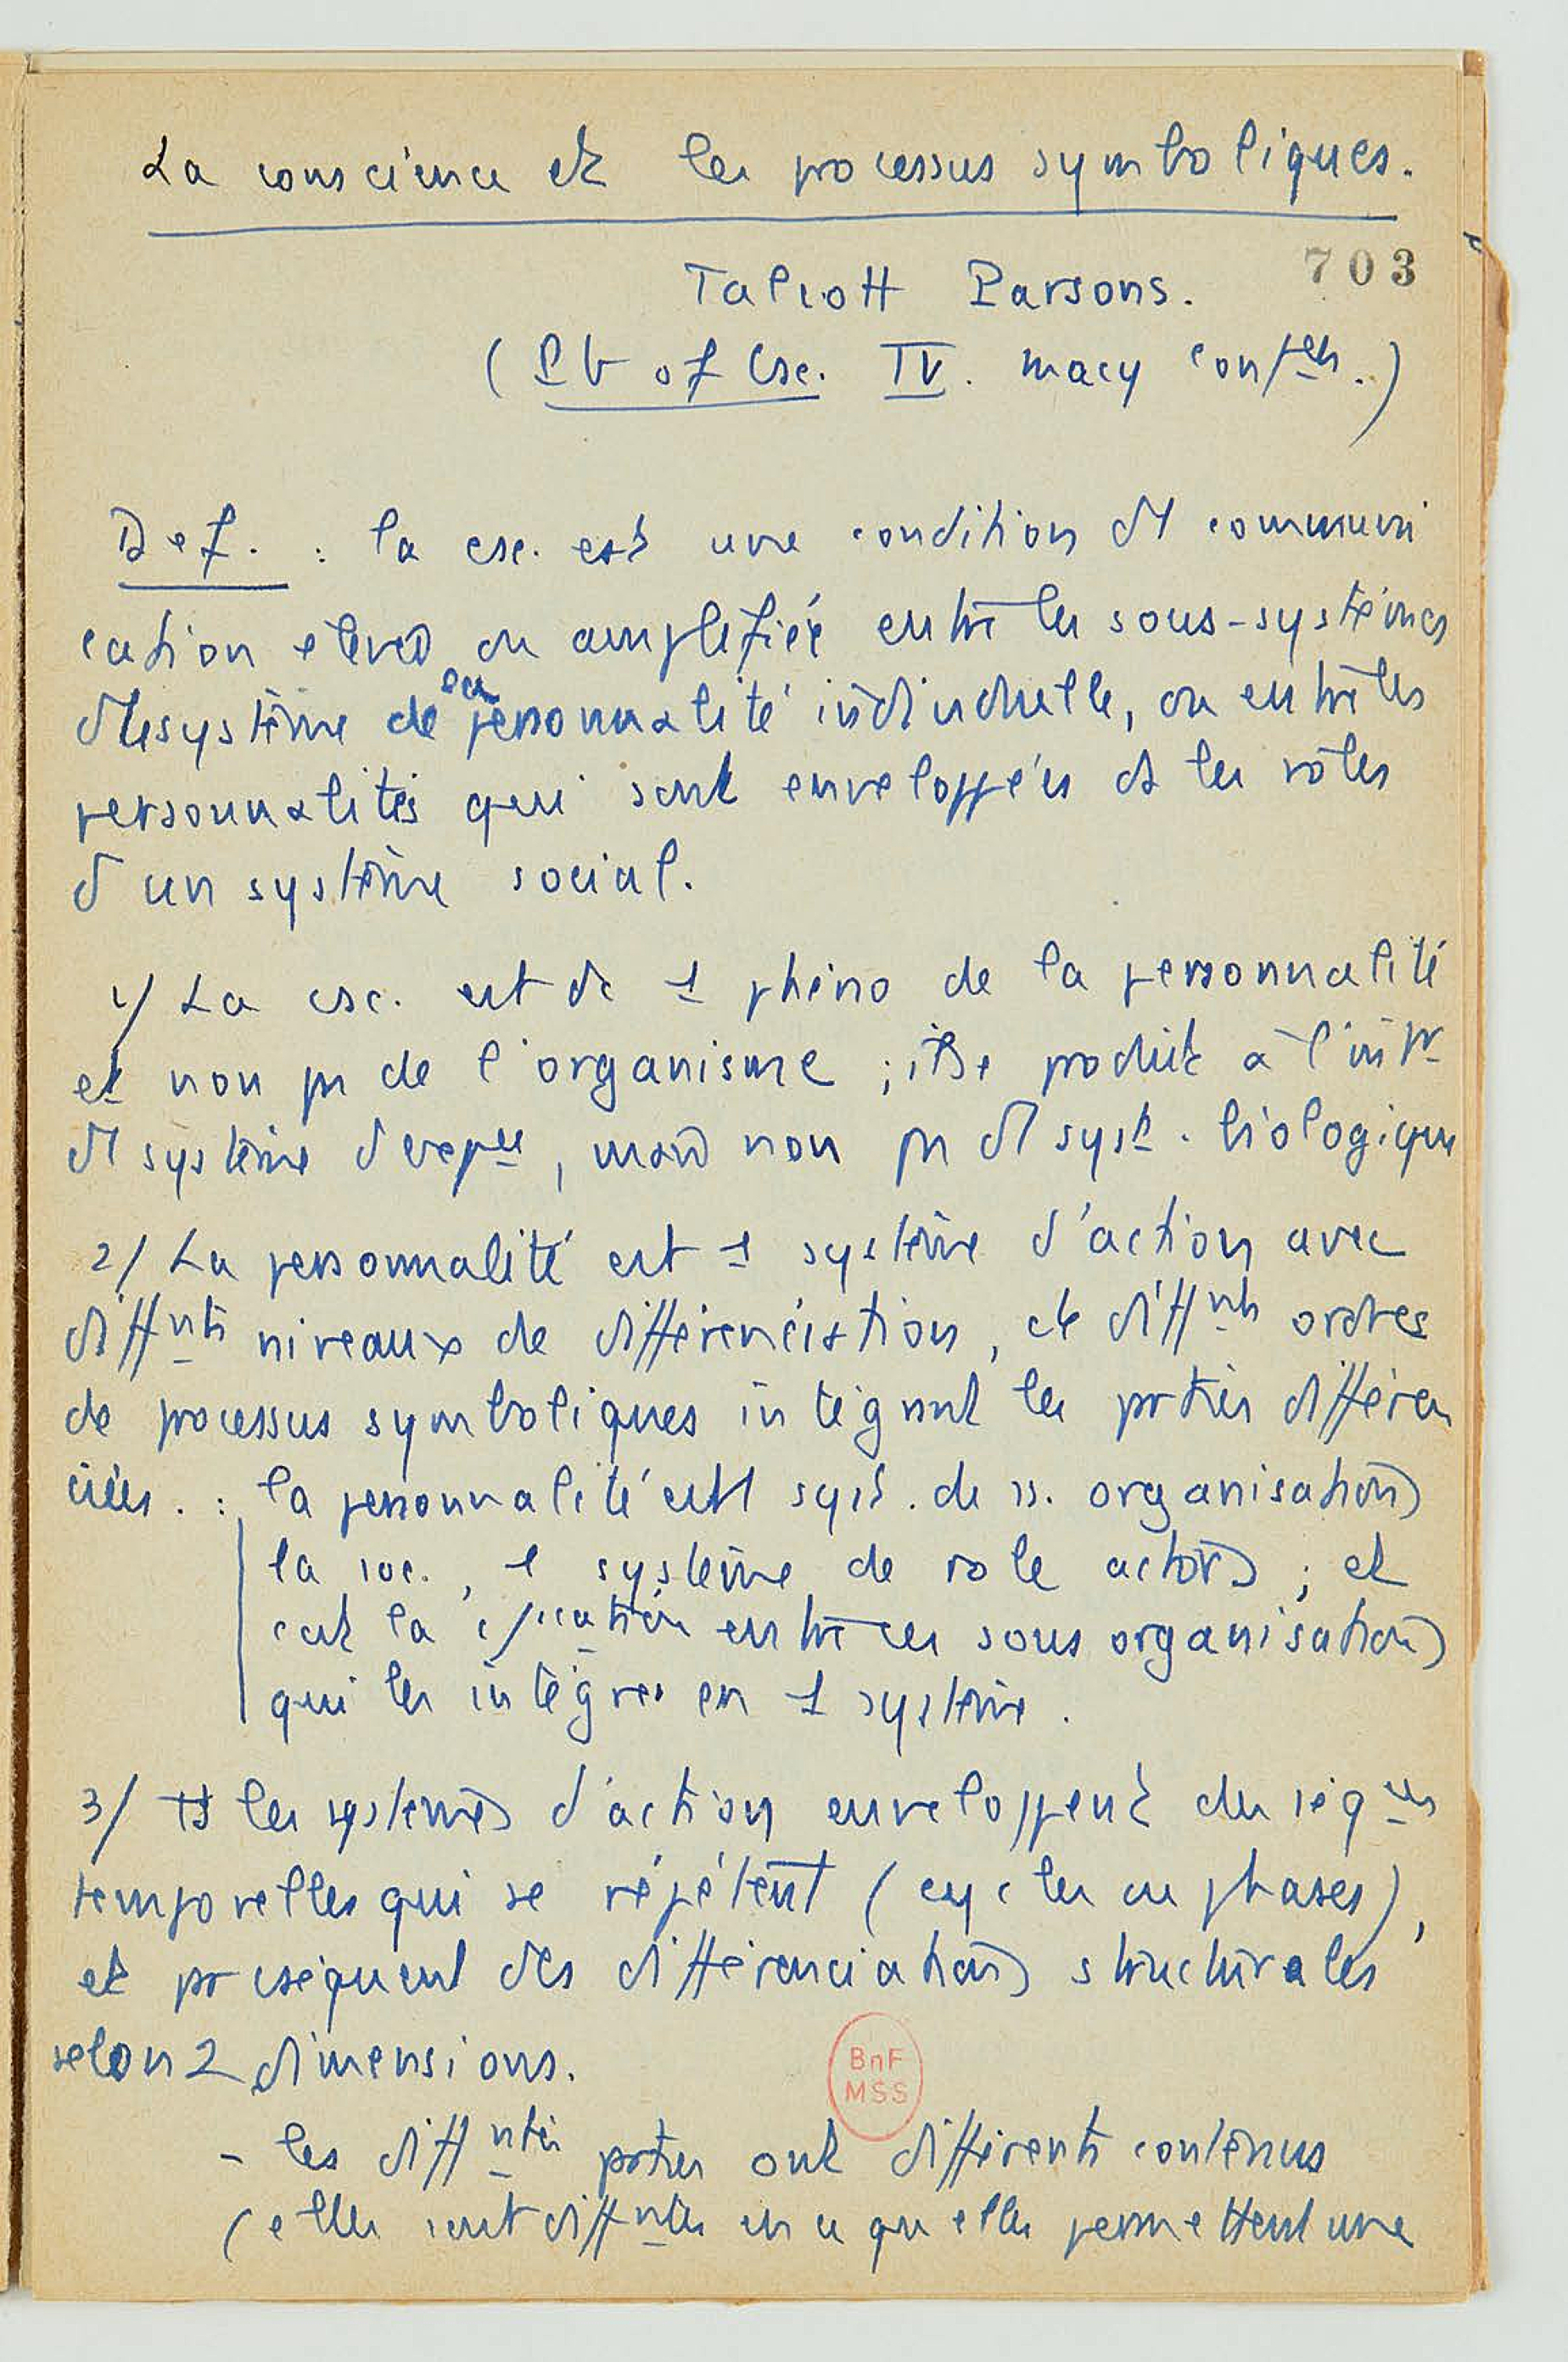 La conscience et les processus symboliques.
703
Talcott Parsons.
(Pb of Csc. IV. Macy Conf.)
Def. : la csc. est une condition de communi
cation élevée ou amplifiée entre les sous-systèmes
système de la personnalité individuelle, ou entre les
personnalités qui sont enveloppées ds les rôles
d'un système social.
1/ La csc. est dc 1 phéno de la personnalité
et non pas de l'organisme ; il se produit à l'intr
d'1 système, mais non pas d'1 syst. biologique
2/ La personnalité est 1 système d'action avec
diffnts niveaux de différenciation, et diffnts ordres
de processus symboliques intégrant les parties différen
ciées. : la personnalité est 1 syst. de ss. organisations
la soc., 1 système de role actors ; et
c'est la entre ces sous organisations
qui les intègre en 1 système.
3/ Ts les systèmes d'action enveloppent des séqces
temporelles qui se répètent (cycles ou phases),
et pr cséquent des différenciations structurales
selon 2 dimensions.
- les diffntes parties ont différents contenus
(elles sont diffntes en ce qu'elles permettent une
BnF
MSS